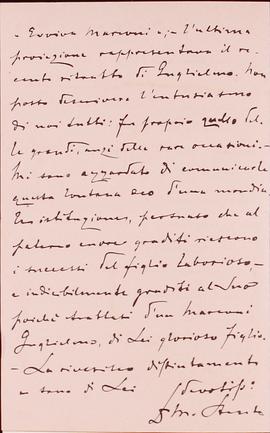 "Evviva Marconi"; - l'ultima
proiezione rappresentava il re-
cente ritratto di Guglielmo. Non
posso descrivere l'entusiasmo
di noi tutti: fu proprio quello del
le grandi, anzi delle rare occasioni. -
Mi sono azzardato di comunicarle
questa lontana eco d'una mondia
le istituzione, persuaso che al
paterno cuore graditi riescono
i successi del figlio laborioso, -
e indicibilmente graditi al Suo
poichè trattasi d'un Marconi
Guglielmo, di Lei glorioso figlio. -
- La riverisco distintamente
e sono di Lei devotiss.